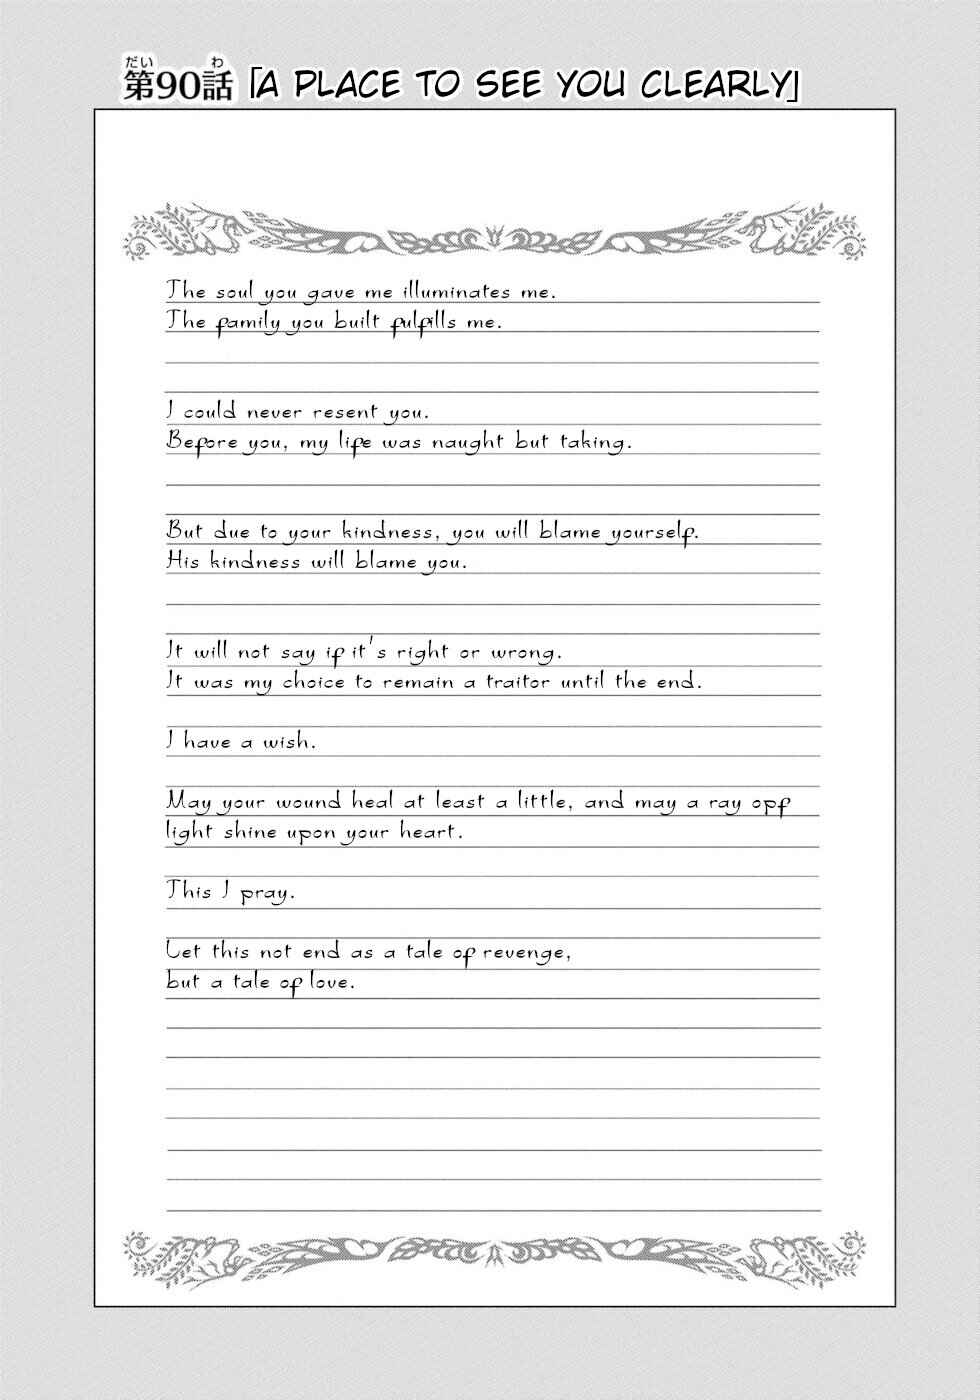 だい わ
第90話 「A PLACE TO SEE YOU CLEARLY」
The soul you gave me illuminates me.
The family you built fulfills me.
I could never resent you.
Before you, my life was naught but taking.
But due to your kindness, you will blame yourself.
His kindness will blame you.
It will not say if it's right or wrong.
It was my choice to remain a traitor until the end.
I have a wish.
May your wound heal at least a little, and may a ray opf
light shine upon your heart.
This I pray.
Let this not end as a tale of revenge,
but a tale of love.